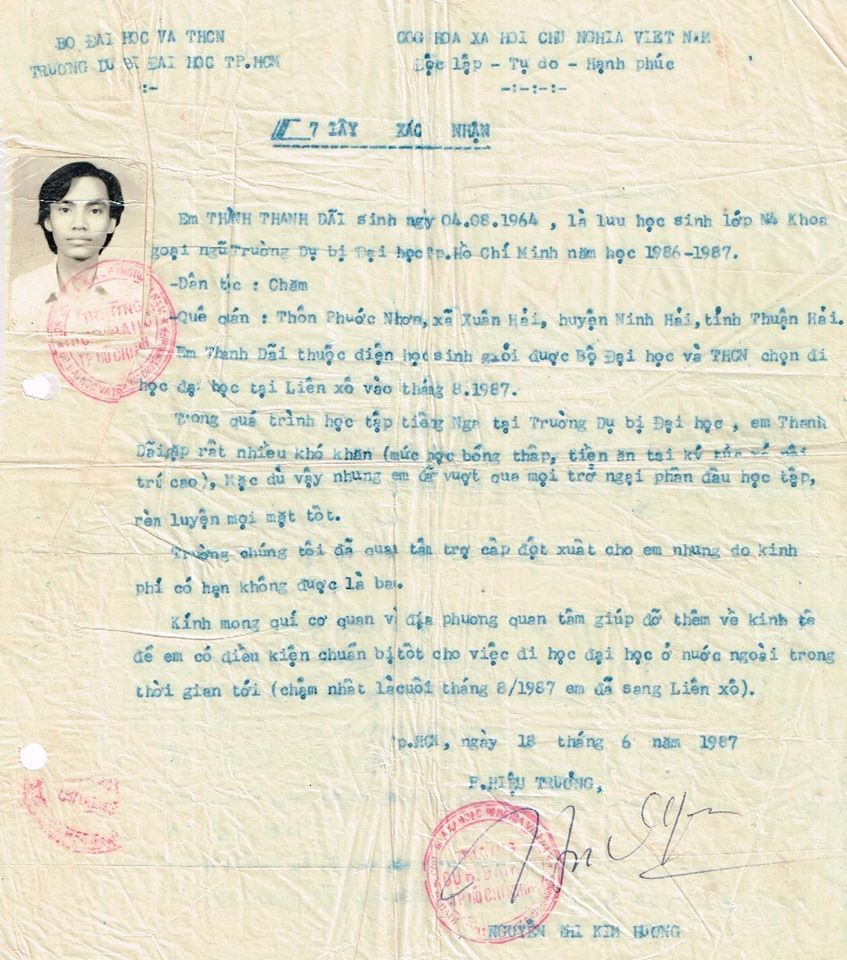 BO ĐAI HOC VA THCN
TRUONG DU BI ĐAI HOC TP.HCM
:-
COG HOA XA HOI CHU NGHIA VIET NAM
Độc lập - Tự do - Hạnh phúc
-:-:-:-
7 IÂY XÁC NHẬN
Em THÀNH THANH DÃI sinh ngỳ 04.08.1964 , là lưu học sinh lớp N4 Khoa
goại ngữ Trường Dự bị Đại học p.Hồ Chí Minh năm học 1986-1987.
-Dân tộc : Chăm
-Quê quán : Thôn Phước Nhơn, xã Xuân Hải, huyện Ninh Hải, tỉnh Thuận Hải.
Em Thanh Dãi thuộc diện học sinh giỏi được Bộ Đại học và THCN chọn đi
học đại học tại Liên xô vào tháng 8.1987.
Trong quá trình học tập tiếng Nga tại Trường Dự bị Đại học , em Thanh
Dãi gặp rất nhiều khó khăn (mức học bổng thấp, tiền ăn tại ký túc xá
trí cao), Mặc dù vậy nhưng em đã vượt qua mọi trở ngại phấn đấu học tập,
rèn luyện mọi mặt tốt.
Trường chúng tôi đã quan tâm trợ cấp đột xuất cho em nhưng do kinh
phí có hạn không được là bao.
Kính mong quí cơ quan và địa phương quan tâm giúp đỡ thêm về kinh tế
để em có điều kiện chuẩn bị tốt cho việc đi học đại học ở nước ngoài trong
thời gian tới (chậm nhất là cuối tháng 8/1987 em đã sang Liên xô).
p.HCM, ngày 18 tháng 6 năm 1987
P.HIỆU TRƯỞNG,
NGUYỄN THI KIM HƯƠNG